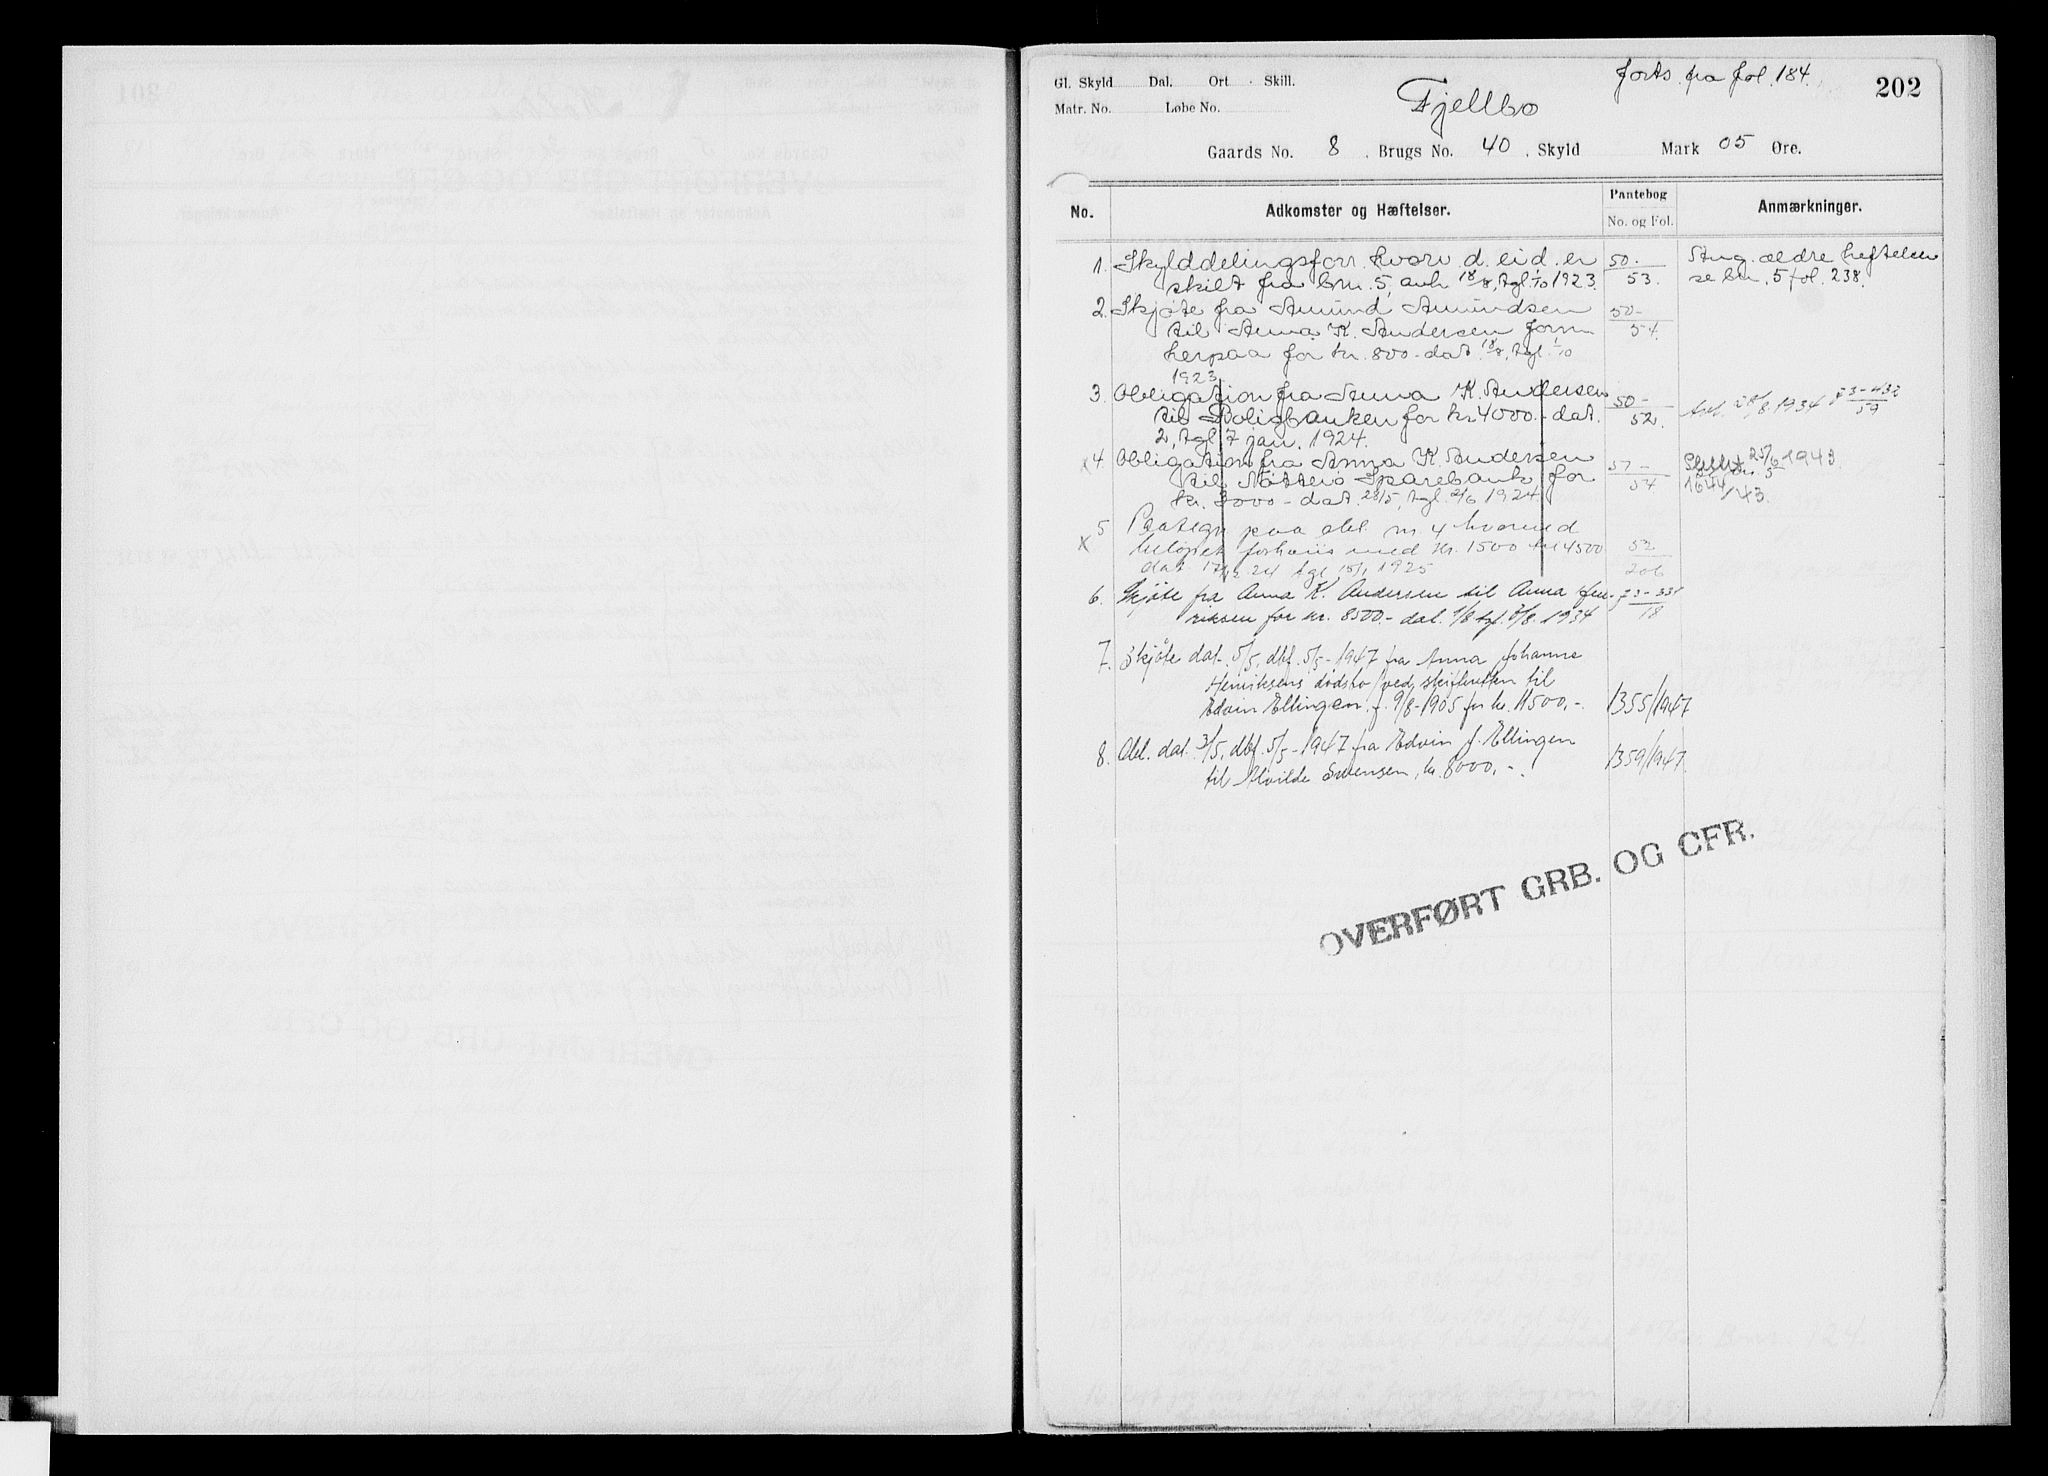 forts. fra fol. 184.
202
Gl. Skyld Dal. Ort Skill.
Matr. No. Løbe No.
Fjellbo
Gaards No. 8. Brugs No. 40. Skyld Mark 05 Øre.
No. Adkomster og Hæftelser. Pantebog No. og Fol. Anmærkninger.
1. Skylddelingsforr. hvorv. d. eid. er 50- Ang. ældre heftelser
skilt fra bnr. 5, avh 18/8, tgl. 1/10 1923. 53. se bn. 5 fol. 238.
2. Skjøte fra Amund Amundsen 50-
til Anna K. Andersen
herpaa for kr. 800- dat. 18/8, tgl. 1/10 54.
1923
3. Obligation fra Anna K. Andersen 50-
til Boligbanken for kr. 4000.- dat. 52. 1934
2, tgl. 7 jan. 1924.
x4. Obligation fra Anna K. Andersen 51- Slettet 25/6 1943.
til Nøtterø Sparebank for 54
kr. 3000- dat. 28/5, tgl. 2/6 1924 1644/43.
5 Paategn paa obl. nr 4 hvorved
x beløpet forhøiis med kr. 1500 til 4500 52
dat. 17/12 24 tgl. 15/1 1925 206
6. Skjøte fra Anna K. Andersen til Anna Hen-
riksen for kr. 8500.- dat. 1/8 tgl. 1934 18
7. Skjøte dat. 5/5, dbf. 5/5-1947 fra Anna Johanne
Henriksens dødsbo ved skifteretten til
Edvin Ellingen f. 9/8-1905 for kr. 11500,-. 1355/1947
8. Obl. dat. 3/5, dbf. 5/5-1947 fra Edvin J. Ellingen
til Alvilde Svensen, kr. 8000,-. 1359/1947.
OVERFØRT GRB. OG CFR.